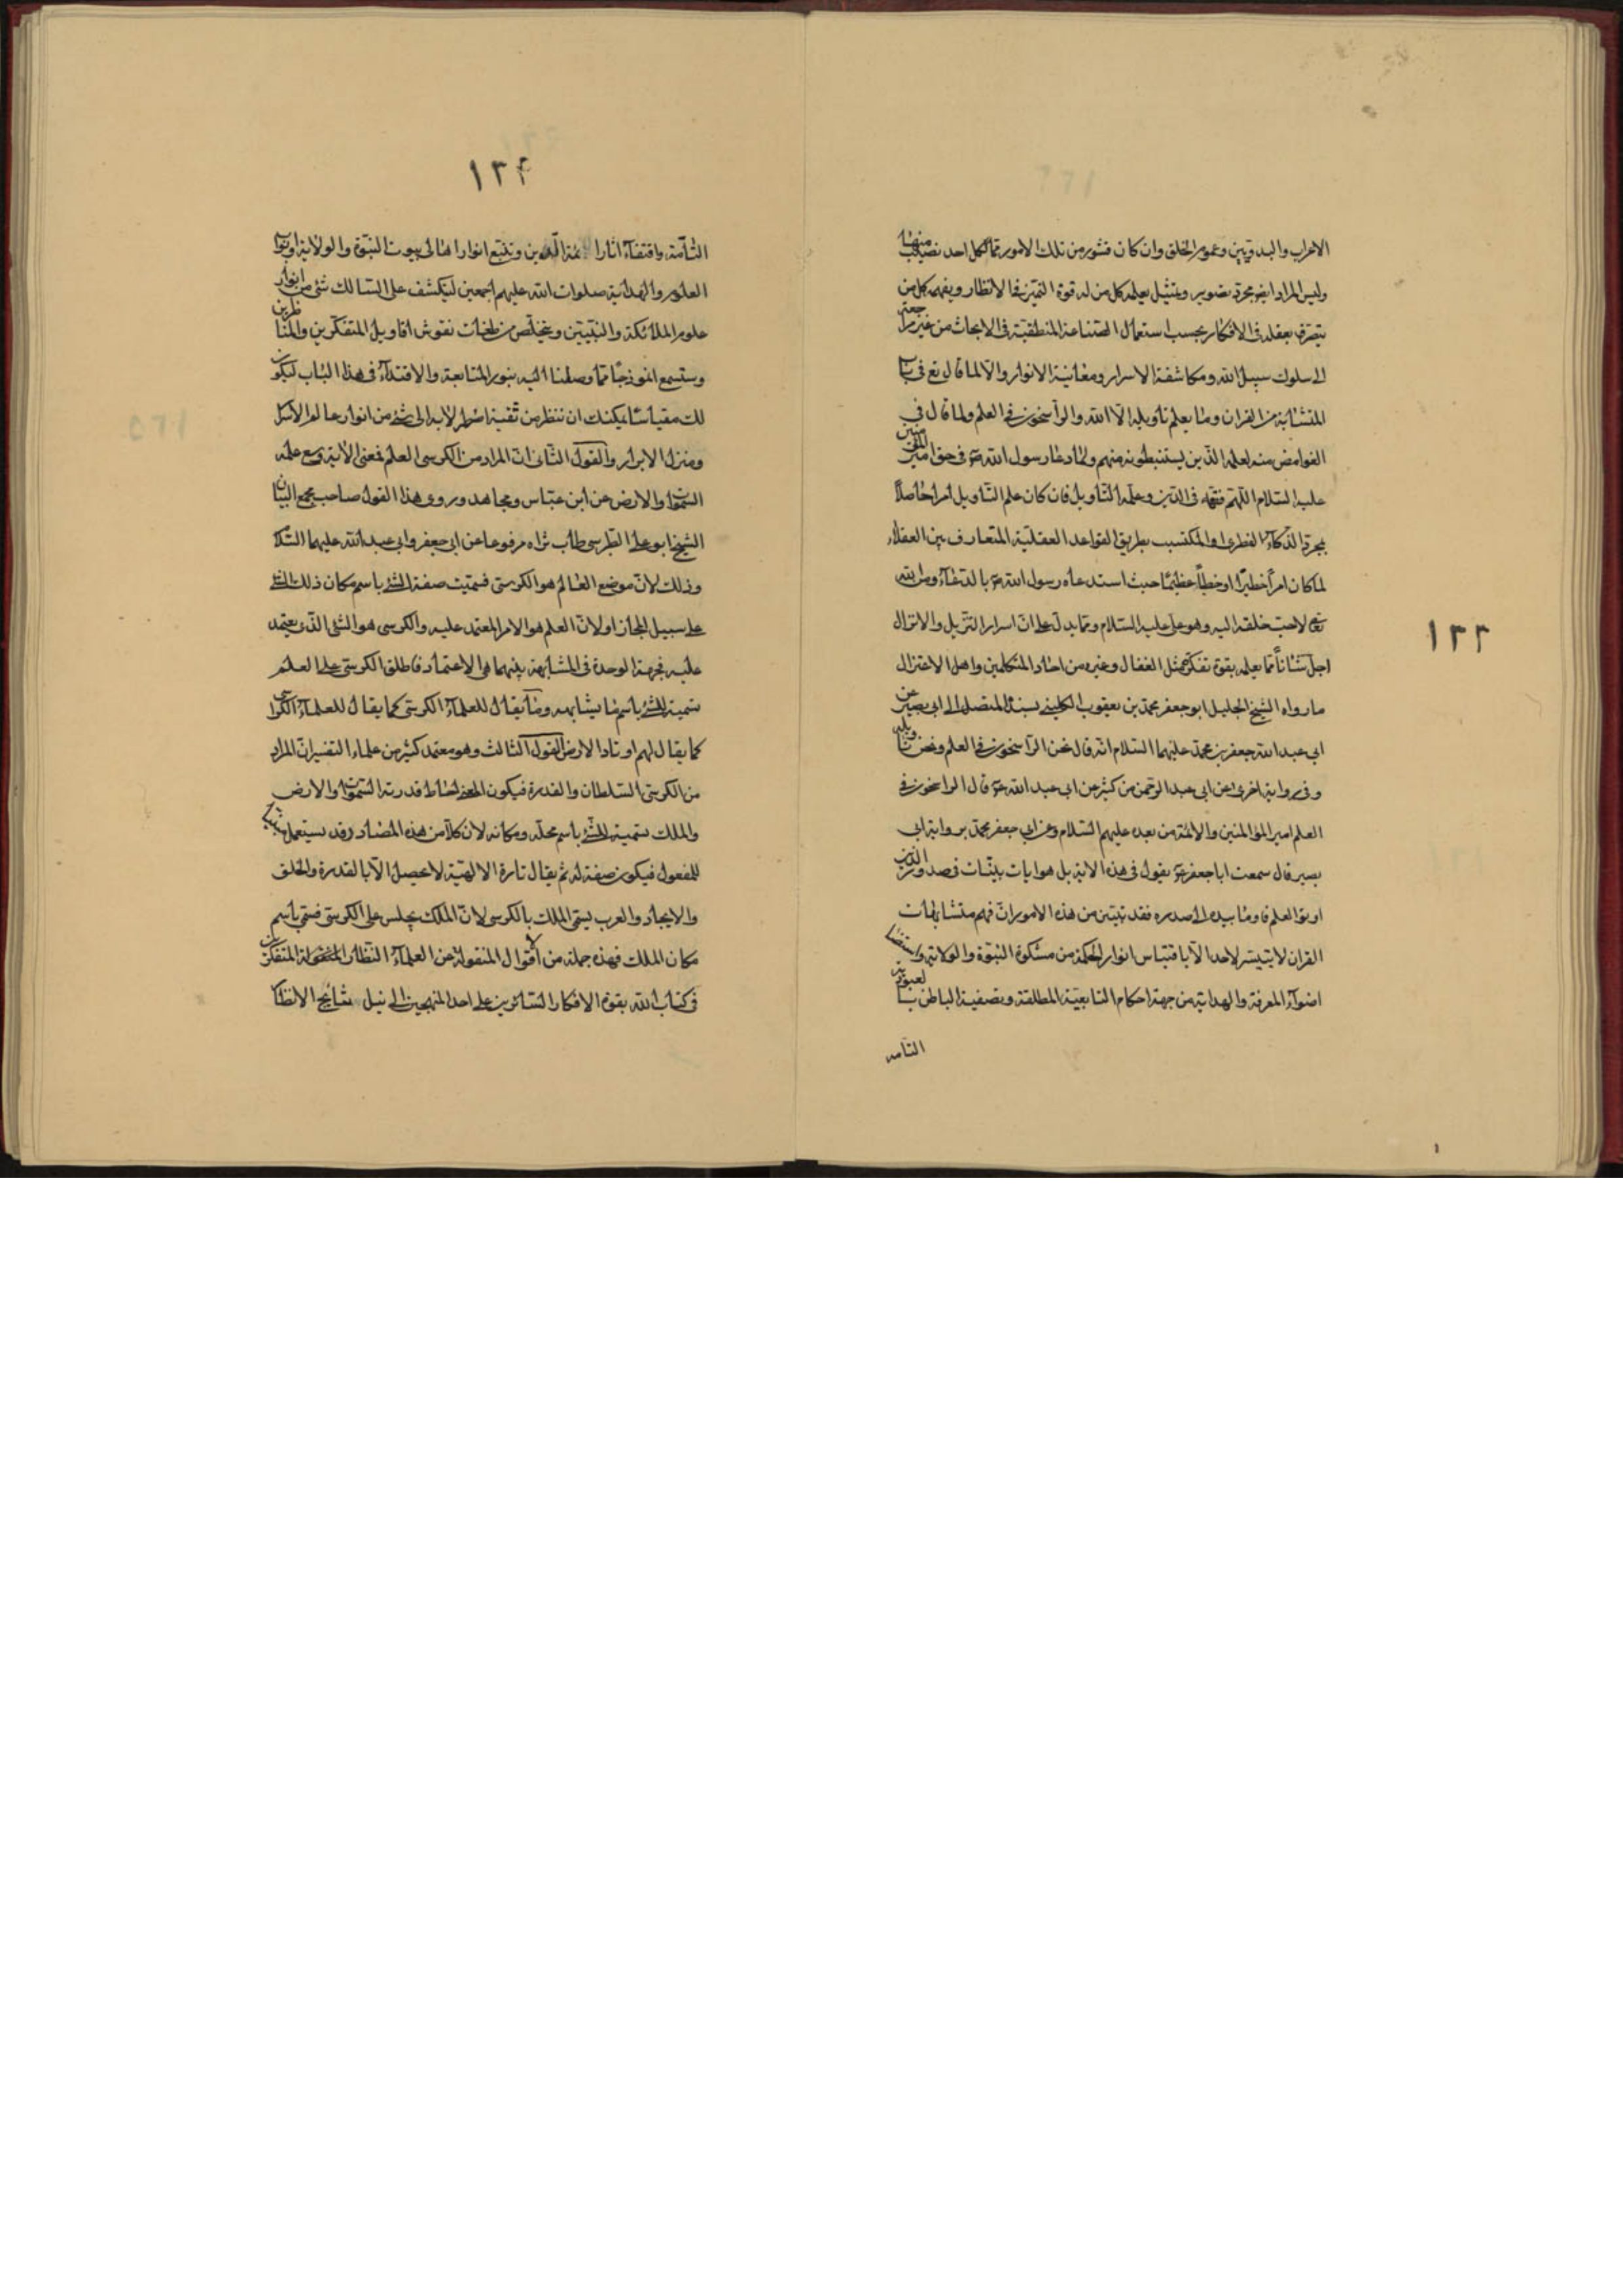 ١٣٣
الاعراب والبدويين وعموم الخلق وان كان قشور من تلك الامور مما لكل احد نصيب منها
وليس المراد ايضو مجرد تصوير وتمثيل يعلمه كل من له قوة التميز فى الانظار ويفهمه كل من
يتصرف بعقله فى الافكار بحسب استعمال الصناعة المنطقية فى الابحاث من غير مراجعة
الى سلوك سبيل الله ومكاشفة الاسرار ومعاينة الانوار والا لما قال تع فى باب
المتشابة من القران وما يعلم تاويله الا الله والراسخون فى العلم ولما قال فى
الغوامض منه لعلمه الذين يستنبطونه منهم ولما دعا رسول الله ص فى حق امير المؤمنين
عليه السلام اللهم فقهه فى الدين وعلمه التاويل فان كان علم التاويل امرا حاصلا
بمجرد الذكاء الفطرى او المكتسب بطريق القواعد العقلية المتعارف بين العقلاء
لما كان امرا خطيرا او خطبا عظيما حيث استدعاه رسول الله ص بالدعاء ومن الله
تعالى لاحب خلقه اليه وهو على عليه السلام ومما يدل على ان اسرار التنزيل والانزال
اجل شانا مما يعلمه بقوة تفكره مثل القفال وغيره من احاد المتكلمين واهل الاعتزال
ما رواه الشيخ الجليل ابو جعفر محمد بن يعقوب الكلينى بسنده المتصل الى ابى بصير عن
ابى عبد الله جعفر بن محمد عليهما السلام انه قال نحن الراسخون فى العلم ونحن نعلم تاويله
وفى رواية اخرى عن ابى عبد الرحمن بن كثير عن ابى عبد الله ع قال الراسخون فى
العلم امير المؤمنين والائمة من بعده عليهم السلام وعن ابى جعفر محمد برواية ابى
بصير قال سمعت ابا جعفر ع يقول فى هذه الاية بل هو ايات بينات فى صدور الذين
اوتوا العلم فاومأ بيده الى صدره فقد تبين من هذه الامور ان فهم متشابهات
القران لا يتيسر لاحد الا باقتباس انوار الحكمة من مشكوة النبوة والولاية واستضاءة
اضواء المعرفة والهداية من جهة احكام التابعية المطلقة وتصفية الباطن بالعبودية
التامه
١٣۴
التامة واقتفاء اثار ائمة الدين وتتبع انوار اهالى بيوت النبوة والولاية وابواب
العلوم والهداية صلوات الله عليهم اجمعين لينكشف على السالك شئ من انوار
علوم الملائكة والنبيين ويتخلص من ظلمات نقوش اقاويل المتفكرين والمناظرين
وستسمع انموذجا مما وصلنا اليه بنور المتابعة والاقتداء فى هذا الباب ليكون
لك مقياسا يمكنك ان تنظر من ثقبة اصطرلابه الى شئ من انوار عالم الاسرار
ومنزل الابرار والقول الثانى ان المراد من الكرسى العلم فمعنى الاية وسع علمه
السموات والارض عن ابن عباس ومجاهد وروى هذا القول صاحب مجمع البيان
الشيخ ابو على الطبرسى طاب ثراه مرفوعا عن ابى جعفر وابى عبد الله عليهما السلام
وذلك لان موضع العالم هو الكرسى فسميت صفة الشئ باسم مكان ذلك الشئ
على سبيل المجاز او لان العلم هو الامر المعتمد عليه والكرسى هو الشئ الذى يعتمد
عليه فجهة الوحدة فى المشابهة بينهما هى الاعتماد فاطلق الكرسى على العلم
تسمية الشئ باسم ما يشابهه ومنه يقال للعلماء الكرسى كما يقال للعلماء الكراسى
كما يقال لهم اوتاد الارض القول الثالث وهو معتمد كثير من علماء التفسير ان المراد
من الكرسى السلطان والقدرة فيكون المعنى احاط قدرته السموات والارض
والملك تسمية الشئ باسم محله ومكانه لان كلا من هذه المصادر قد يستعمل
للمفعول فيكون صفة له ثم يقال تارة الالهية لا تحصل الا بالقدرة والخلق
والايجاد والعرب يسمى الملك بالكرسى لان الملك يجلس على الكرسى فسمى باسم
مكان الملك فهذه جملة من أقوال المنقولة عن العلماء النظار المتفكرين
فى كتاب الله بقوة الافكار السائرين على احد المنهجين الى نيل نتائج الانظار